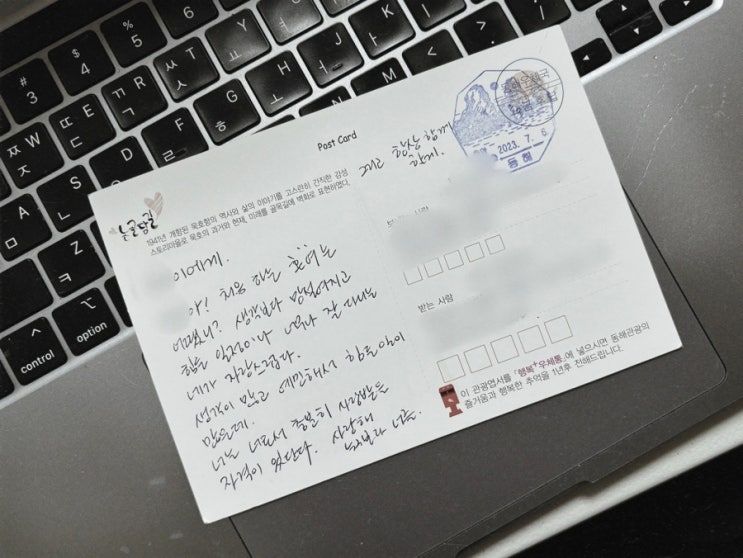 Post Card
논골담길
1941년 개항된 묵호항의 역사와 삶의 이야기를 고스란히 간직한 감성
스토리마을로 묵호의 과거와 현재, 미래를 골목길에 벽화로 표현하였다.
이에게.
야! 처음 하는 혼여는
어땠니? 생각보다 망설여지고
힘들 일정이나 너무나 잘 다니는
네가 자랑스럽다.
생각이 많고 예민해서 힘든 일이
많은데.
너는 너로서 충분히 사랑받을
자격이 있단다. 사랑해
누구보다 너를.
그리고 항상 함께
함께.
동해우체국
2023. 7. 6
동해
받는 사람
이 관광엽서를 「행복+우체통」에 넣으시면 동해관광의
즐거움과 행복한 추억을 1년후 전해드립니다.
# 3
$ 4
% 5
W ㅈ
E ㄷ
R ㄱ
T ㅅ
Y ㅛ
U ㅕ
I ㅑ
A ㅁ
S ㄴ
D
F
G ㅎ
H ㅗ
J ㅓ
K ㅏ
L
Z ㅋ
M
<
>
?
control
option